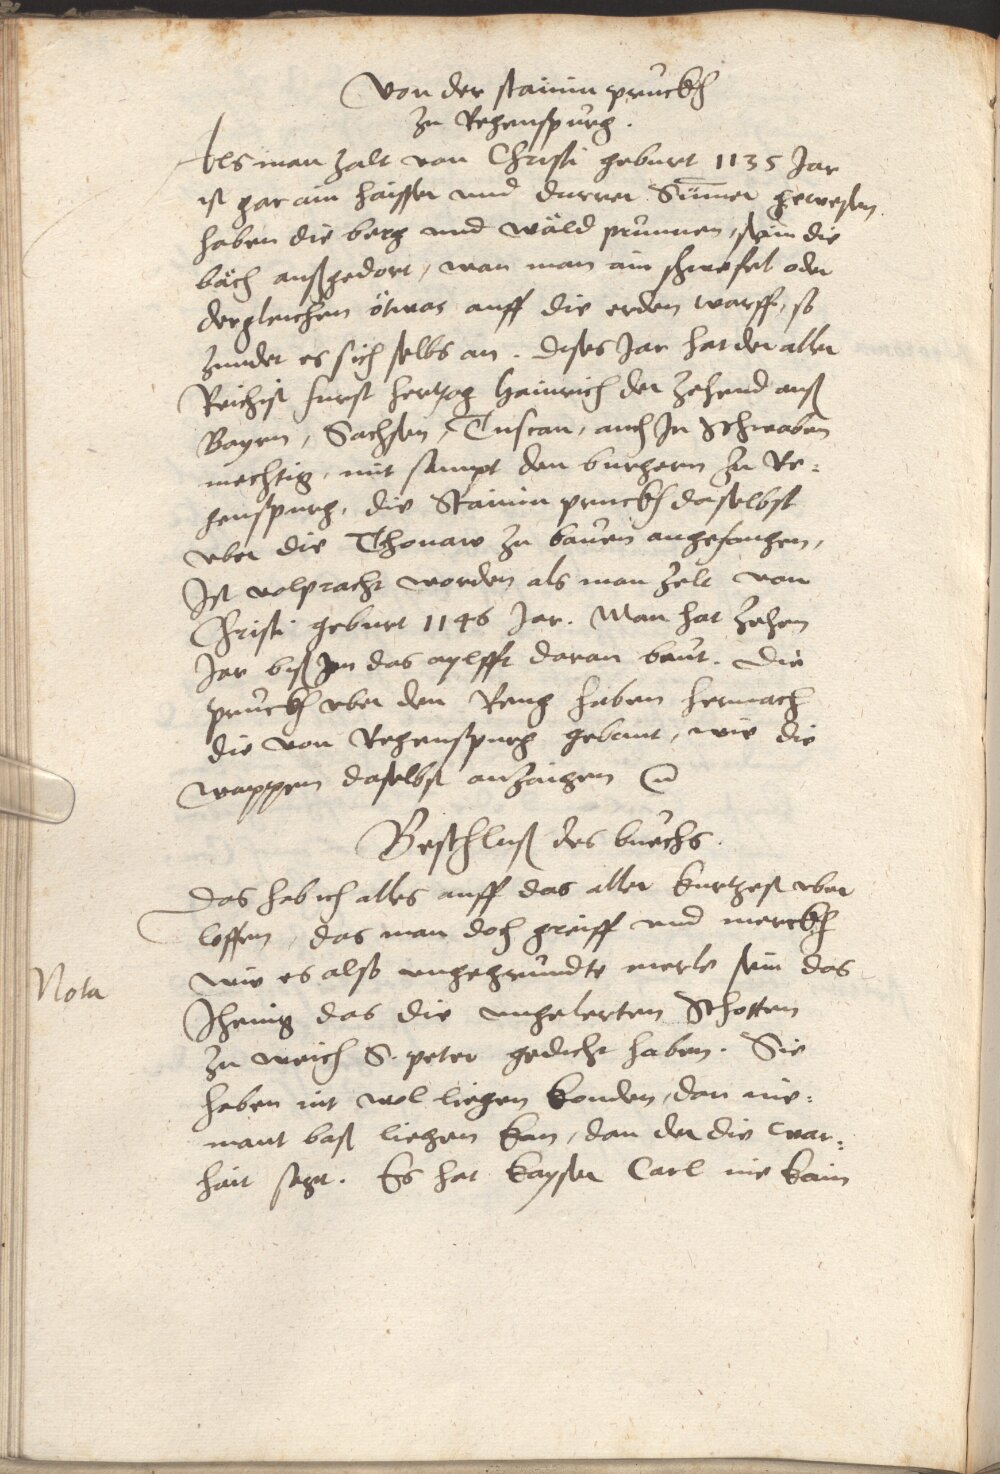 Von der stainin pruckh
zu Regenspurg.
Als man zalt von Christi geburt 1135 Jar
ist gar ain haisser vnd durrer Sum̅er gewesen
haben die berg vnd wäld prunnen, sein die
bäch außgedort, wan man ain schwefel oder
dergleichen ötwas auff die erden warff, so
zundet es sich selbs an. dises Jar hat der aller
Reichist furst hertzog Hainrich der zehend auß
Bayrn, Sachsen, Tuscan, auch In Schwaben
mechtig, mit sampt den burgern zu Re:
genspurg, die Stainin pruckh daselbst
vber die Thonaw zu bauen angefangen,
Ist volpracht worden als man zelt von
Christi geburt 1146 Jar. Man hat zehen
Jar biß Jn das aylfft daran baut. Die
pruckh vber den Reng haben hernach
die von Regenspurg gebaut, wie die
wappen daselbst anzaigen
Beschluß des buechs.
Das hab ich alles auff das aller kurtzest vber
loffen, das man doch greiff vnd merckh
wie es also vngegrundte merle sein das
Nota
Jhenig das die vngelerten Schotten
zu weich S. peter gedicht haben. Sie
haben nit wol liegen konden, dan nie:
mant baß liegen kan, dan der die war:
hait sagt. Es hat kayser Carl nie kain